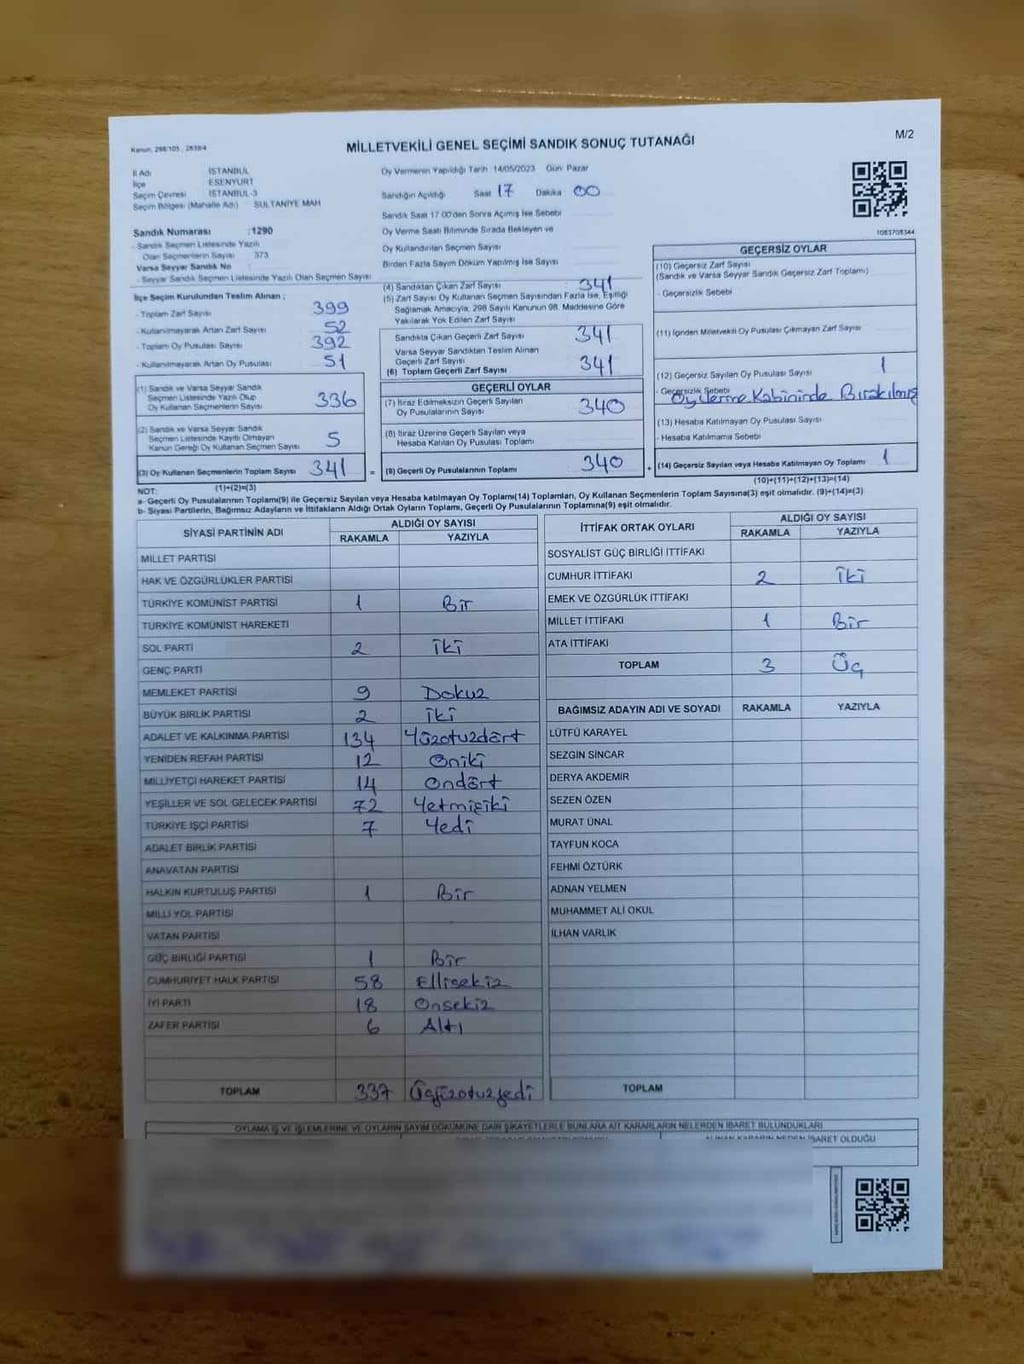 Kanun: 298/105 ; 2839/4
MİLLETVEKİLİ GENEL SEÇİMİ SANDIK SONUÇ TUTANAĞI
M/2
İl Adı İSTANBUL
İlçe ESENYURT
Seçim Çevresi İSTANBUL-3
Seçim Bölgesi (Mahalle Adı) SULTANİYE MAH
Sandık Numarası :1290
- Sandık Seçmen Listesinde Yazılı
Olan Seçmenlerin Sayısı 373
Varsa Seyyar Sandık No
- Seyyar Sandık Seçmen Listesinde Yazılı Olan Seçmen Sayısı
Oy Vermenin Yapıldığı Tarih 14/05/2023 Gün Pazar
Sandığın Açıldığı Saat 17 Dakika 00
Sandık Saat 17.00'den Sonra Açılmış İse Sebebi
Oy Verme Saati Bitiminde Sırada Bekleyen ve
Oy Kullandırılan Seçmen Sayısı
Birden Fazla Sayım Döküm Yapılmış İse Sayısı
1083708344
İlçe Seçim Kurulundan Teslim Alınan ;
- Toplam Zarf Sayısı 399
- Kullanılmayarak Artan Zarf Sayısı 52
- Toplam Oy Pusulası Sayısı 392
- Kullanılmayarak Artan Oy Pusulası 51
(1) Sandık ve Varsa Seyyar Sandık
Seçmen Listesinde Yazılı Olup
Oy Kullanan Seçmenlerin Sayısı 336
(2) Sandık ve Varsa Seyyar Sandık
Seçmen Listesinde Kayıtlı Olmayan
Kanun Gereği Oy Kullanan Seçmen Sayısı 5
(3) Oy Kullanan Seçmenlerin Toplam Sayısı 341 =
(1)+(2)=(3)
(4) Sandıktan Çıkan Zarf Sayısı 341
(5) Zarf Sayısı Oy Kullanan Seçmen Sayısından Fazla İse, Eşitliği
Sağlamak Amacıyla, 298 Sayılı Kanunun 98. Maddesine Göre
Yakılarak Yok Edilen Zarf Sayısı
Sandıkta Çıkan Geçerli Zarf Sayısı 341
Varsa Seyyar Sandıktan Teslim Alınan
Geçerli Zarf Sayısı
(6) Toplam Geçerli Zarf Sayısı 341
GEÇERLİ OYLAR
(7) İtiraz Edilmeksizin Geçerli Sayılan
Oy Pusulalarının Sayısı 340
(8) İtiraz Üzerine Geçerli Sayılan veya
Hesaba Katılan Oy Pusulası Toplamı
(9) Geçerli Oy Pusulalarının Toplamı 340 +
GEÇERSİZ OYLAR
(10) Geçersiz Zarf Sayısı
(Sandık ve Varsa Seyyar Sandık Geçersiz Zarf Toplamı)
- Geçersizlik Sebebi
(11) İçinden Milletvekili Oy Pusulası Çıkmayan Zarf Sayısı
(12) Geçersiz Sayılan Oy Pusulası Sayısı 1
- Geçersizlik Sebebi Oy Verme Kabininde Bırakılmış
(13) Hesaba Katılmayan Oy Pusulası Sayısı
- Hesaba Katılmama Sebebi
(14) Geçersiz Sayılan veya Hesaba Katılmayan Oy Toplamı 1
(10)+(11)+(12)+(13)=(14)
NOT:
a- Geçerli Oy Pusulalarının Toplamı(9) ile Geçersiz Sayılan veya Hesaba katılmayan Oy Toplamı(14) Toplamları, Oy Kullanan Seçmenlerin Toplam Sayısına(3) eşit olmalıdır. (9)+(14)=(3)
b- Siyasi Partilerin, Bağımsız Adayların ve İttifakların Aldığı Ortak Oyların Toplamı, Geçerli Oy Pusulalarının Toplamına(9) eşit olmalıdır.
SİYASİ PARTİNİN ADI ALDIĞI OY SAYISI
RAKAMLA YAZIYLA
MİLLET PARTİSİ
HAK VE ÖZGÜRLÜKLER PARTİSİ
TÜRKİYE KOMÜNİST PARTİSİ 1 Bir
TÜRKİYE KOMÜNİST HAREKETİ
SOL PARTİ 2 İki
GENÇ PARTİ
MEMLEKET PARTİSİ 9 Dokuz
BÜYÜK BİRLİK PARTİSİ 2 İki
ADALET VE KALKINMA PARTİSİ 134 Yüzotuzdört
YENİDEN REFAH PARTİSİ 12 Oniki
MİLLİYETÇİ HAREKET PARTİSİ 14 Ondört
YEŞİLLER VE SOL GELECEK PARTİSİ 72 Yetmişiki
TÜRKİYE İŞÇİ PARTİSİ 7 Yedi
ADALET BİRLİK PARTİSİ
ANAVATAN PARTİSİ
HALKIN KURTULUŞ PARTİSİ 1 Bir
MİLLİ YOL PARTİSİ
VATAN PARTİSİ
GÜÇ BİRLİĞİ PARTİSİ 1 Bir
CUMHURİYET HALK PARTİSİ 58 Ellisekiz
İYİ PARTİ 18 Onsekiz
ZAFER PARTİSİ 6 Altı
TOPLAM 337 Üçyüzotuzyedi
İTTİFAK ORTAK OYLARI ALDIĞI OY SAYISI
RAKAMLA YAZIYLA
SOSYALİST GÜÇ BİRLİĞİ İTTİFAKI
CUMHUR İTTİFAKI 2 İki
EMEK VE ÖZGÜRLÜK İTTİFAKI
MİLLET İTTİFAKI 1 Bir
ATA İTTİFAKI
TOPLAM 3 Üç
BAĞIMSIZ ADAYIN ADI VE SOYADI RAKAMLA YAZIYLA
LÜTFÜ KARAYEL
SEZGİN SİNCAR
DERYA AKDEMİR
SEZEN ÖZEN
MURAT ÜNAL
TAYFUN KOCA
FEHMİ ÖZTÜRK
ADNAN YELMEN
MUHAMMET ALİ OKUL
İLHAN VARLIK
TOPLAM
OYLAMA İŞ VE İŞLEMLERİNE VE OYLARIN SAYIM DÖKÜMÜNE DAİR ŞİKAYETLERLE BUNLARA AİT KARARLARIN NELERDEN İBARET BULUNDUKLARI
ALINAN KARARIN NEDEN İBARET OLDUĞU